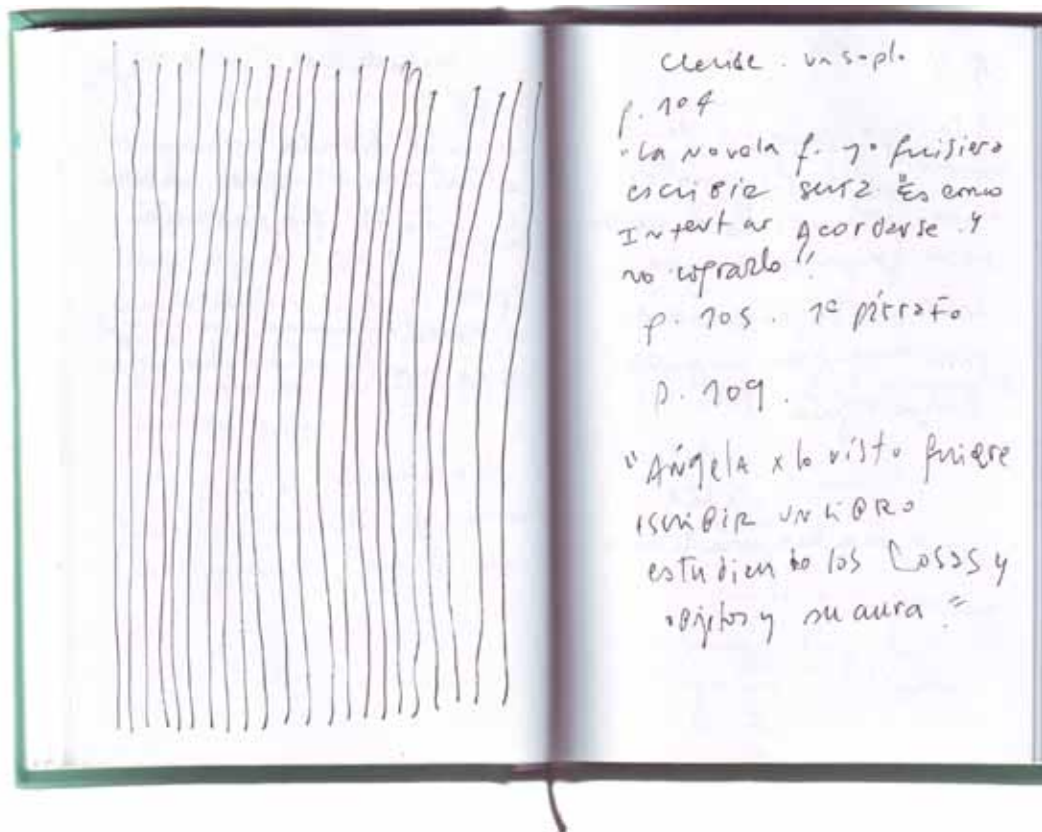 Clarice . un soplo
p. 104
"La novela q. yo quisiera
escribir sería "Es como
Intentar Acordarse y
no lograrlo"
p. 105 . 1º párrafo
p. 109 .
"Ángela x lo visto quiere
escribir un libro
estudiando los Cosas y
objetos y su aura"